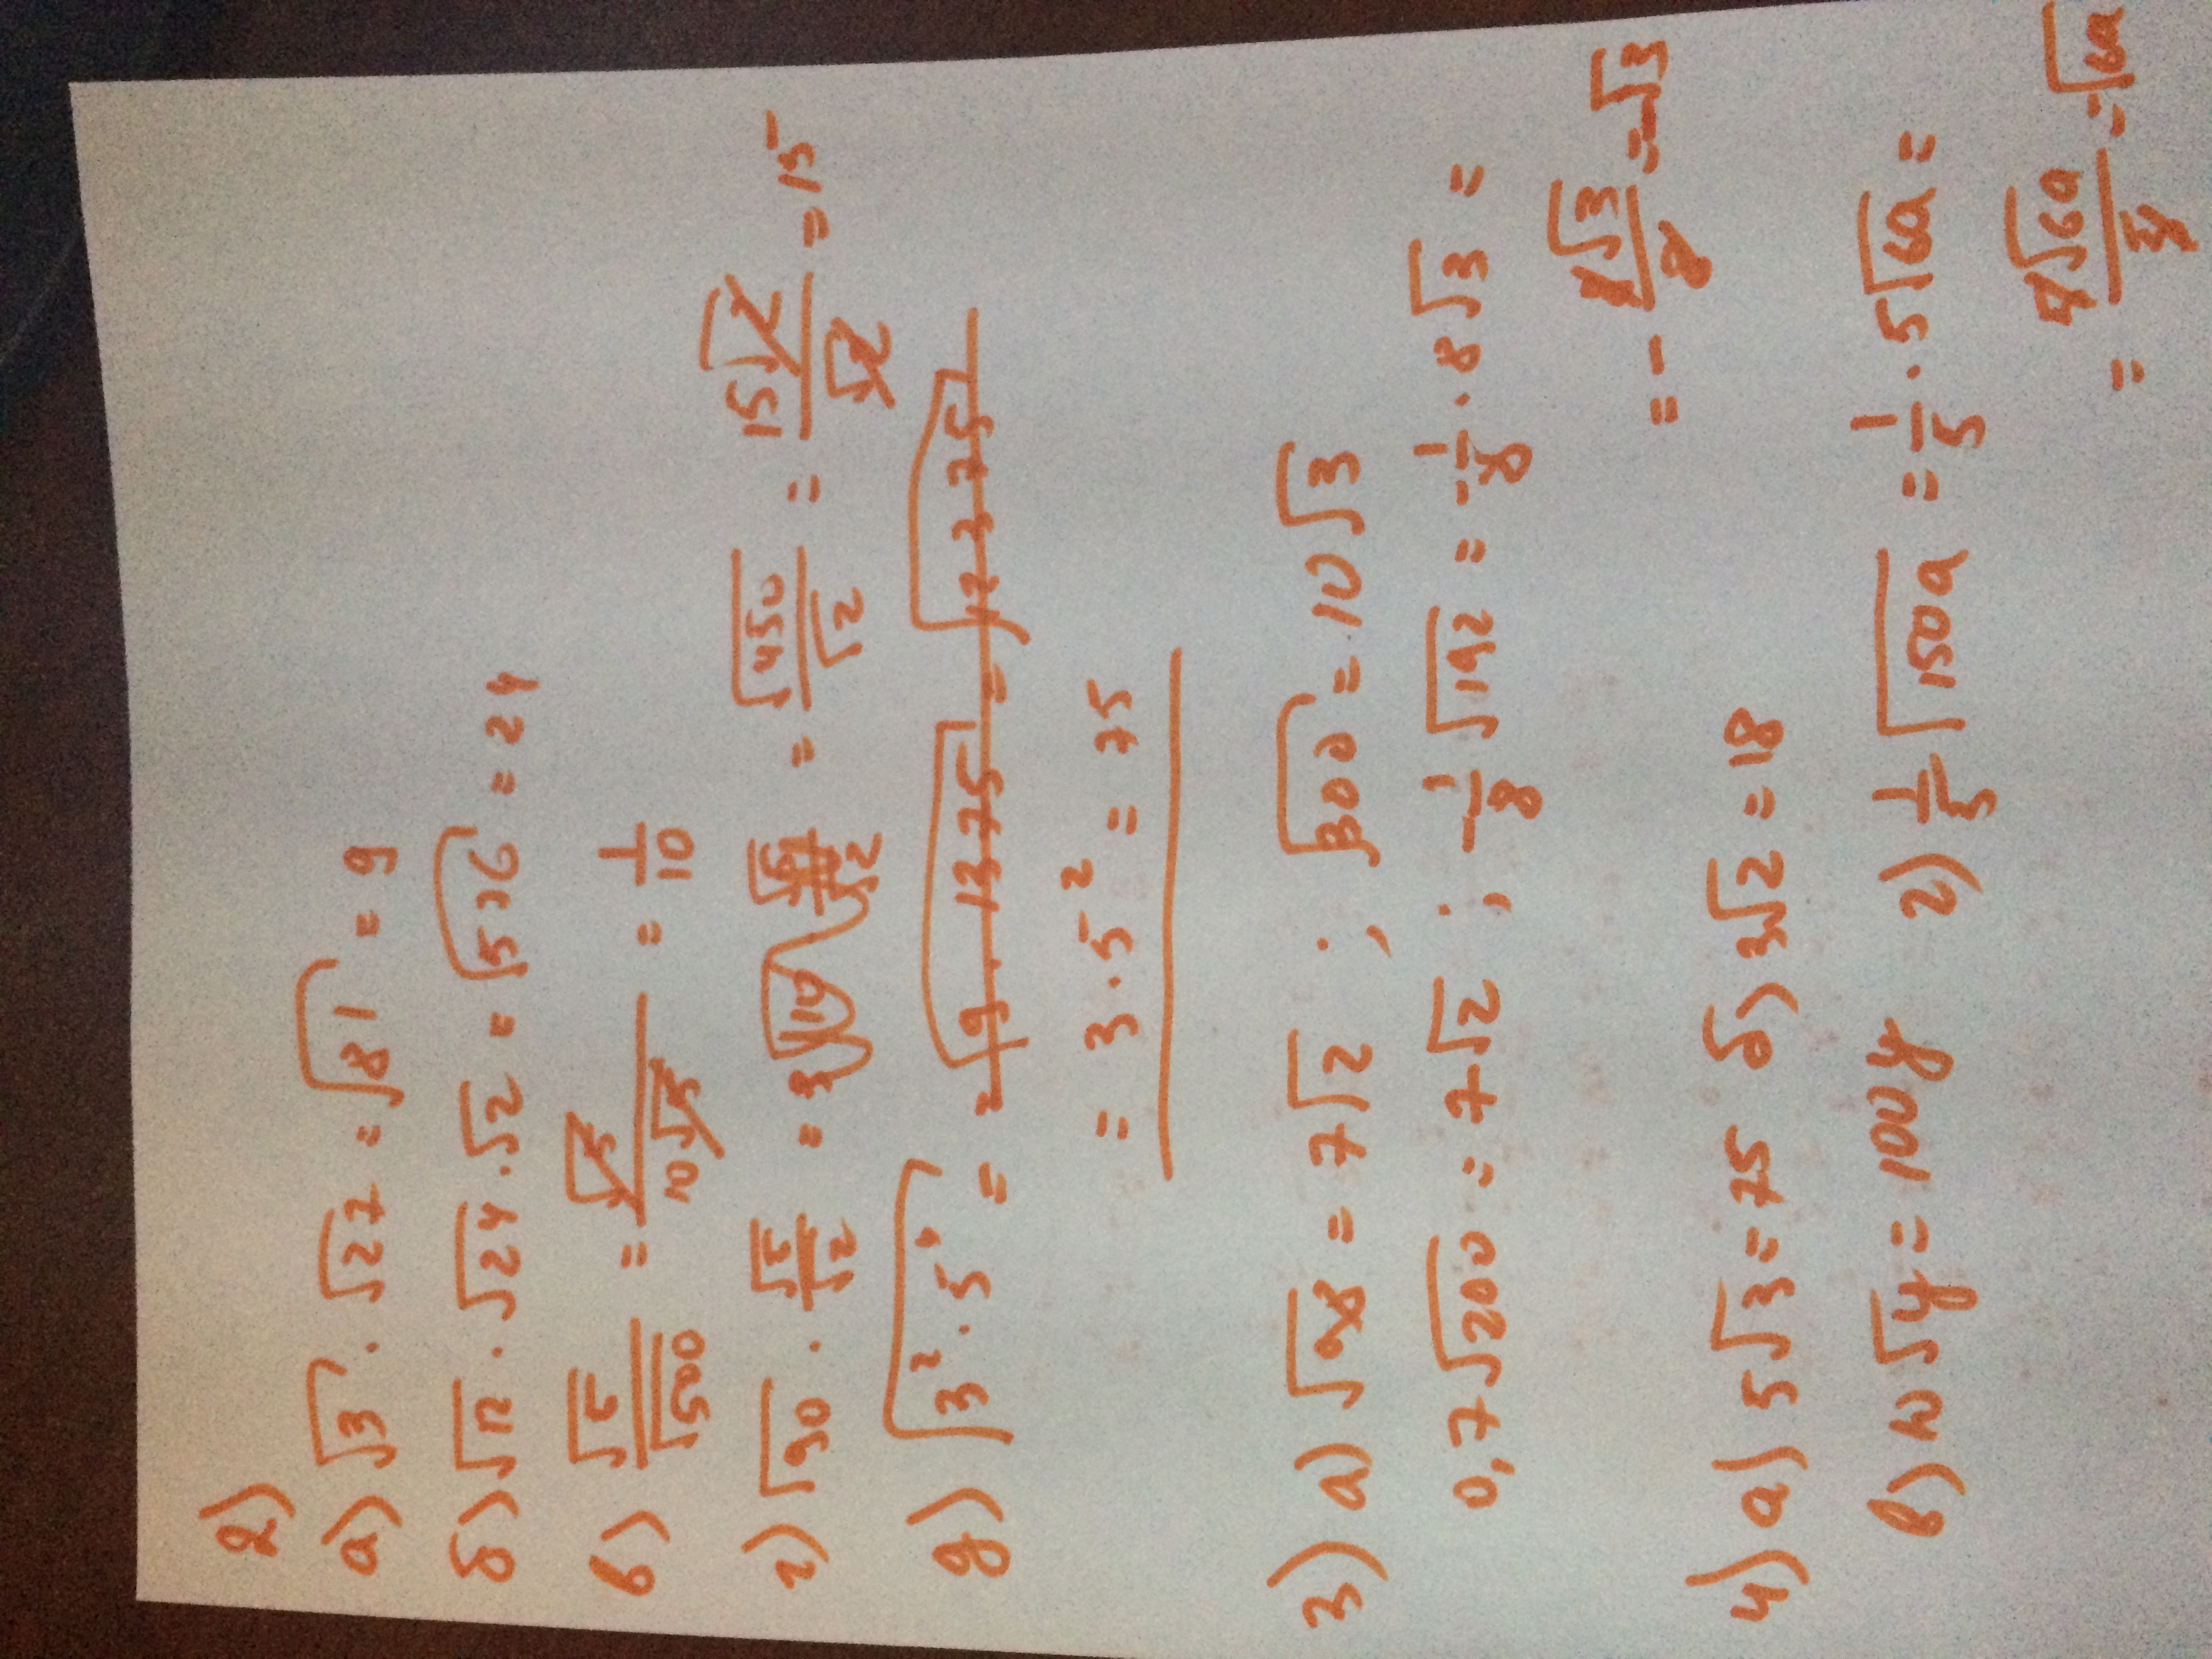 2)
а) √3 · √27 = √81 = 9
б) √12 · √24 · √2 = √576 = 24
в) √5/√500 = √5/10√5 = 1/10
г) √90 · √5/√2 = √450/√2 = 15√2/√2 = 15
д) √3² · 5⁴ =
= 3 · 5² = 75
3) а) √98 = 7√2 ; √300 = 10√3
0,7√200 = 7√2 ; -1/8 √192 = -1/8 · 8√3 =
= - 8√3/8 = -√3
4) а) 5√3 = 75 б) 3√2 = 18
в) 10√y = 100y г) 1/5 √150a = 1/5 · 5√6a =
= √6a = √6a